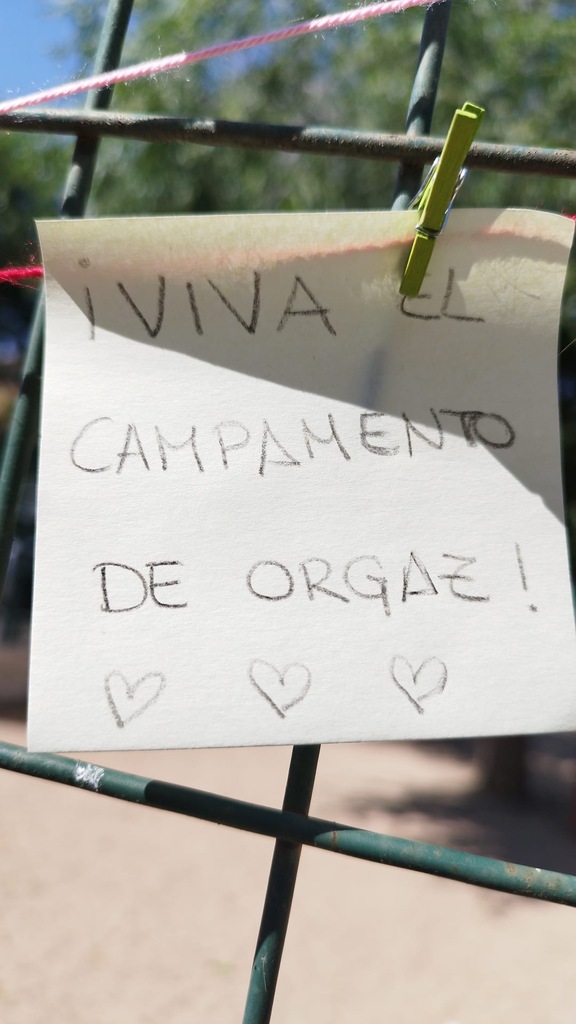 ¡VIVA EL
CAMPAMENTO
DE ORGAZ!
♡ ♡ ♡